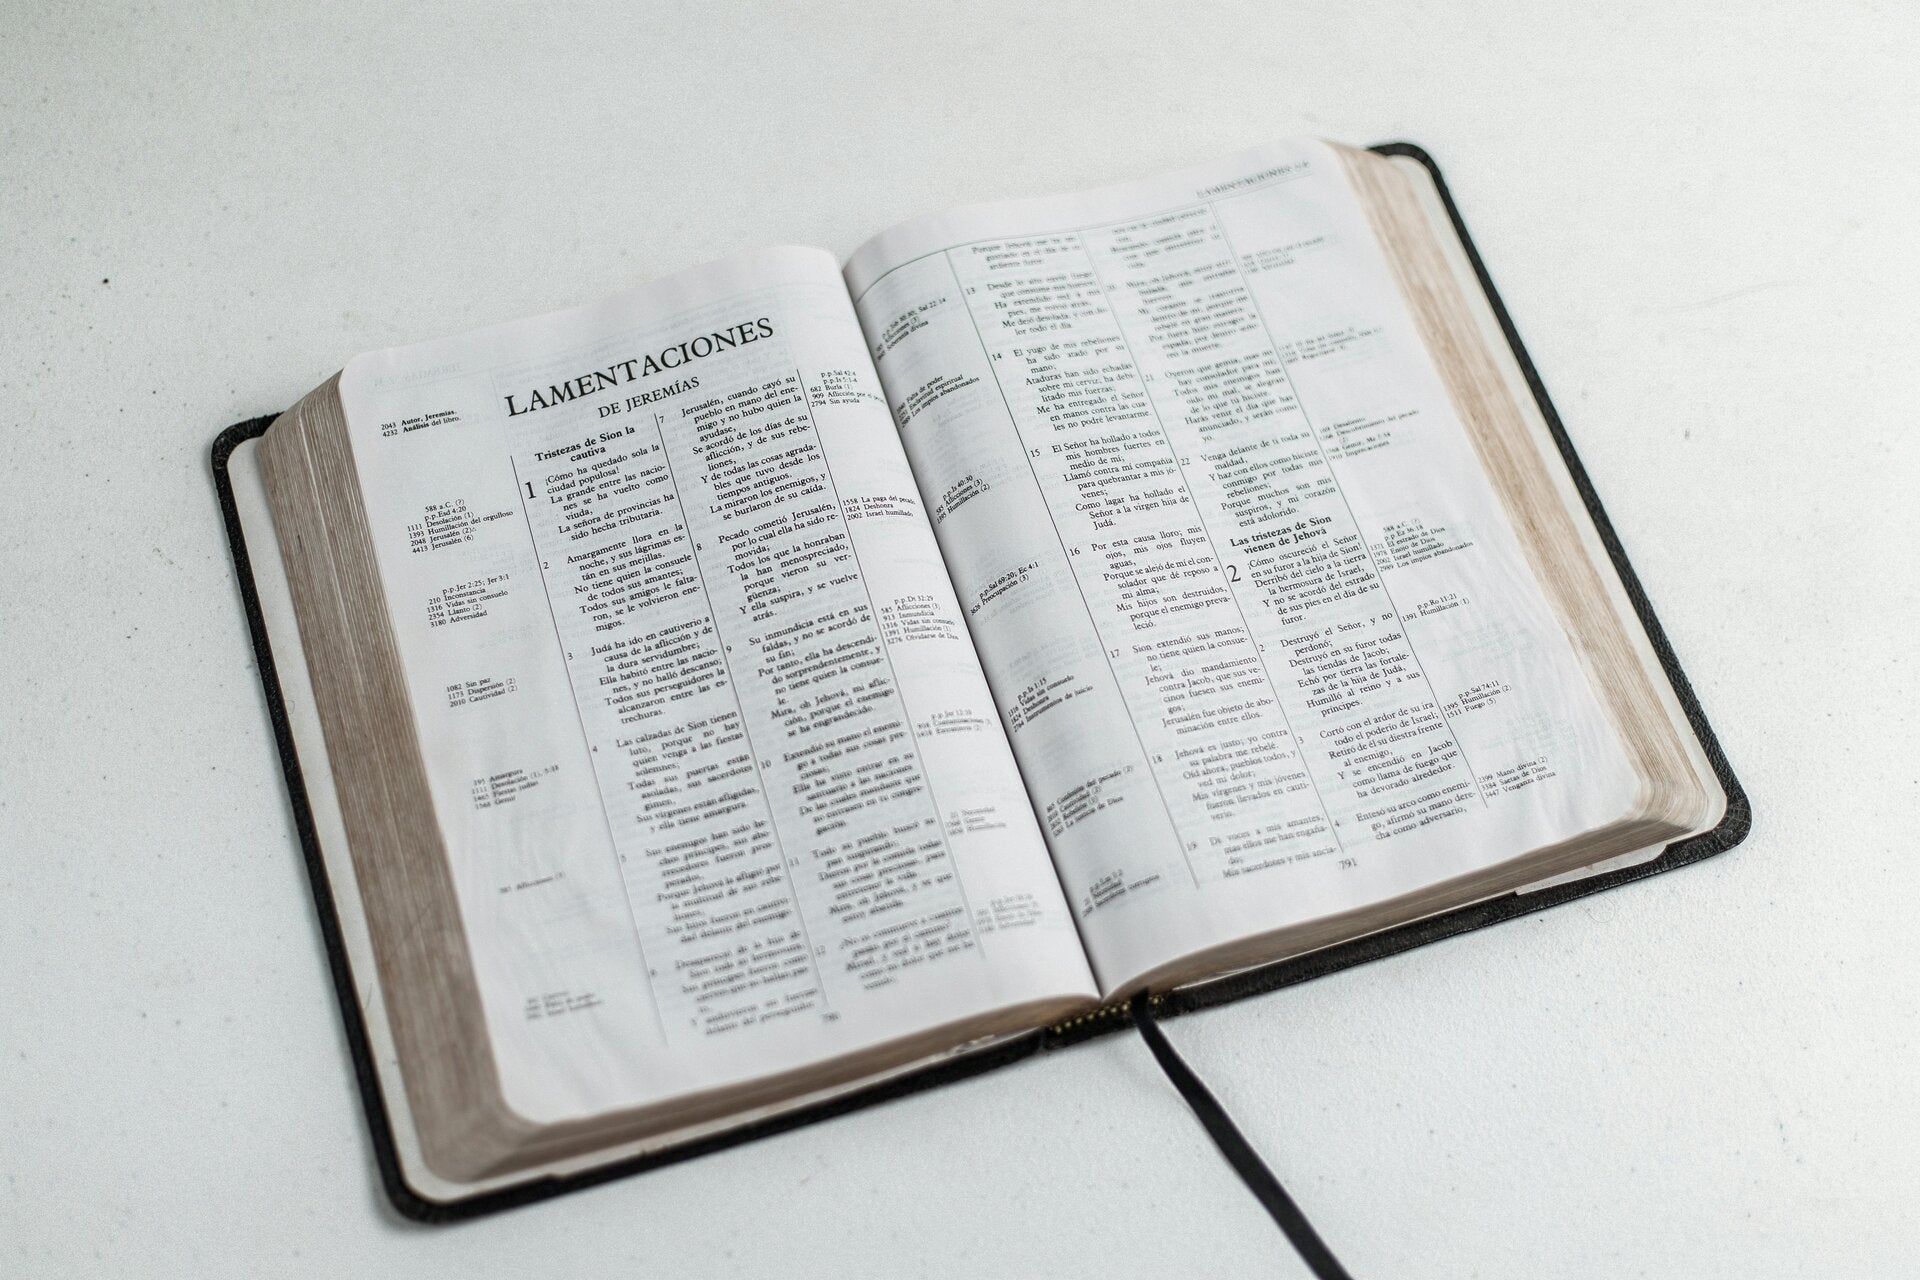 LAMENTACIONES
DE JEREMÍAS
2043 Autor, Jeremías.
4232 Análisis del libro.
588 a.C. (?)
p.p.Esd 4:20
1111 Desolación (1)
1393 Humillación del orgulloso
2048 Jerusalén (2)
4413 Jerusalén (6)
p.p.Jer 2:25; Jer 3:1
210 Inconstancia
1316 Vidas sin consuelo
2354 Llanto (2)
3180 Adversidad
1082 Sin paz
1173 Dispersión (2)
2010 Cautividad (2)
395 Amargura
1111 Desolación (1), 5:18
1465 Fiestas judías
1568 Gemir
Tristezas de Sion la
cautiva
1 ¡Cómo ha quedado sola la
ciudad populosa!
La grande entre las nacio-
nes se ha vuelto como
viuda,
La señora de provincias ha
sido hecha tributaria.
2 Amargamente llora en la
noche, y sus lágrimas es-
tán en sus mejillas.
No tiene quien la consuele
de todos sus amantes;
Todos sus amigos le falta-
ron, se le volvieron ene-
migos.
3 Judá ha ido en cautiverio a
causa de la aflicción y de
la dura servidumbre;
Ella habitó entre las nacio-
nes, y no halló descanso;
Todos sus perseguidores la
alcanzaron entre las es-
trechuras.
4 Las calzadas de Sion tienen
luto, porque no hay
quien venga a las fiestas
solemnes;
Todas sus puertas están
asoladas, sus sacerdotes
gimen,
Sus vírgenes están afligidas,
y ella tiene amargura.
5 Sus enemigos han sido he-
chos príncipes, sus abo-
rrecedores fueron pros-
perados,
Porque Jehová la afligió por
la multitud de sus rebe-
liones;
Sus hijos fueron en cautivi-
dad delante del enemigo.
6 Desapareció de la hija de
Sion toda su hermosura;
Sus príncipes fueron como
ciervos que no hallan pas-
7 Jerusalén, cuando cayó su
pueblo en mano del ene-
migo y no hubo quien la
ayudase,
Se acordó de los días de su
aflicción, y de sus rebe-
liones,
Y de todas las cosas agrada-
bles que tuvo desde los
tiempos antiguos.
La miraron los enemigos, y
se burlaron de su caída.
8 Pecado cometió Jerusalén,
por lo cual ella ha sido re-
movida;
Todos los que la honraban
la han menospreciado,
porque vieron su ver-
güenza;
Y ella suspira, y se vuelve
atrás.
9 Su inmundicia está en sus
faldas, y no se acordó de
su fin;
Por tanto, ella ha descendi-
do sorprendentemente, y
no tiene quien la consue-
le.
Mira, oh Jehová, mi aflic-
ción, porque el enemigo
se ha engrandecido.
10 Extendió su mano el enemi-
go a todas sus cosas pre-
ciosas;
Ella ha visto entrar en su
santuario a las naciones
De las cuales mandaste que
no entrasen en tu congre-
gación.
11 Todo su pueblo buscó su
pan suspirando;
Dieron por la comida todas
sus cosas preciosas, para
entretener la vida.
Mira, oh Jehová, y ve que
estoy abatida.
12 ¿No os conmueve a cuantos
pasáis por el camino?
Mirad, y ved si hay dolor
como mi dolor que me ha
p.p.Is 5:1-4
682 Burla (1)
2794 Sin ayuda
1558 La paga del pecado
1824 Deshonra
2002 Israel humillado
p.p.Dt 32:29
585 Aflicciones (3)
913 Inmundicia
1316 Vidas sin consuelo
1391 Humillación (1)
3276 Olvidarse de Dios
Porque Jehová me ha an-
gustiado en el día de su
ardiente furor.
13 Desde lo alto envió fuego
que consume mis huesos;
Ha extendido red a mis
pies, me volvió atrás,
Me dejó desolada, y con do-
lor todo el día.
14 El yugo de mis rebeliones
ha sido atado por su
mano;
Ataduras han sido echadas
sobre mi cerviz; ha debi-
litado mis fuerzas;
Me ha entregado el Señor
en manos contra las cua-
les no podré levantarme.
15 El Señor ha hollado a todos
mis hombres fuertes en
medio de mí;
Llamó contra mí compañía
para quebrantar a mis jó-
venes;
Como lagar ha hollado el
Señor a la virgen hija de
Judá.
16 Por esta causa lloro; mis
ojos, mis ojos fluyen
aguas,
Porque se alejó de mí el con-
solador que dé reposo a
mi alma;
Mis hijos son destruidos,
porque el enemigo preva-
leció.
17 Sion extendió sus manos;
no tiene quien la consue-
le;
Jehová dio mandamiento
contra Jacob, que sus ve-
cinos fuesen sus enemi-
gos;
Jerusalén fue objeto de abo-
minación entre ellos.
18 Jehová es justo; yo contra
su palabra me rebelé.
Oíd ahora, pueblos todos, y
ved mi dolor;
Mis vírgenes y mis jóvenes
fueron llevados en cauti-
verio.
19 Di voces a mis amantes,
mas ellos me han engaña-
do;
Mis sacerdotes y mis ancia-
20 Mira, oh Jehová, estoy atri-
bulada, mis entrañas
hierven.
Mi corazón se trastorna
dentro de mí, porque me
rebelé en gran manera.
Por fuera hizo estragos la
espada; por dentro seño-
reó la muerte.
21 Oyeron que gemía, mas no
hay consolador para mí;
Todos mis enemigos han
oído mi mal, se alegran
de lo que tú hiciste.
Harás venir el día que has
anunciado, y serán como
yo.
22 Venga delante de ti toda su
maldad,
Y haz con ellos como hiciste
conmigo por todas mis
rebeliones;
Porque muchos son mis
suspiros, y mi corazón
está adolorido.
Las tristezas de Sion
vienen de Jehová
2 ¡Cómo oscureció el Señor
en su furor a la hija de Sion!
Derribó del cielo a la tierra
la hermosura de Israel,
Y no se acordó del estrado
de sus pies en el día de su
furor.
2 Destruyó el Señor, y no
perdonó;
Destruyó en su furor todas
las tiendas de Jacob;
Echó por tierra las fortale-
zas de la hija de Judá,
Humilló al reino y a sus
príncipes.
3 Cortó con el ardor de su ira
todo el poderío de Israel;
Retiró de él su diestra frente
al enemigo,
Y se encendió en Jacob
como llama de fuego que
ha devorado alrededor.
4 Entesó su arco como enemi-
go, afirmó su mano dere-
cha como adversario,
588 a.C. (?)
1371 El estrado de Dios
1978 Enojo de Dios
2002 Israel humillado
2989 Los impíos abandonados
p.p.Ro 11:21
1391 Humillación (1)
p.p.Sal 74:11
1395 Humillación (2)
1511 Fuego (5)
2399 Mano divina (2)
3384 Saetas de Dios
3447 Venganza divina
791